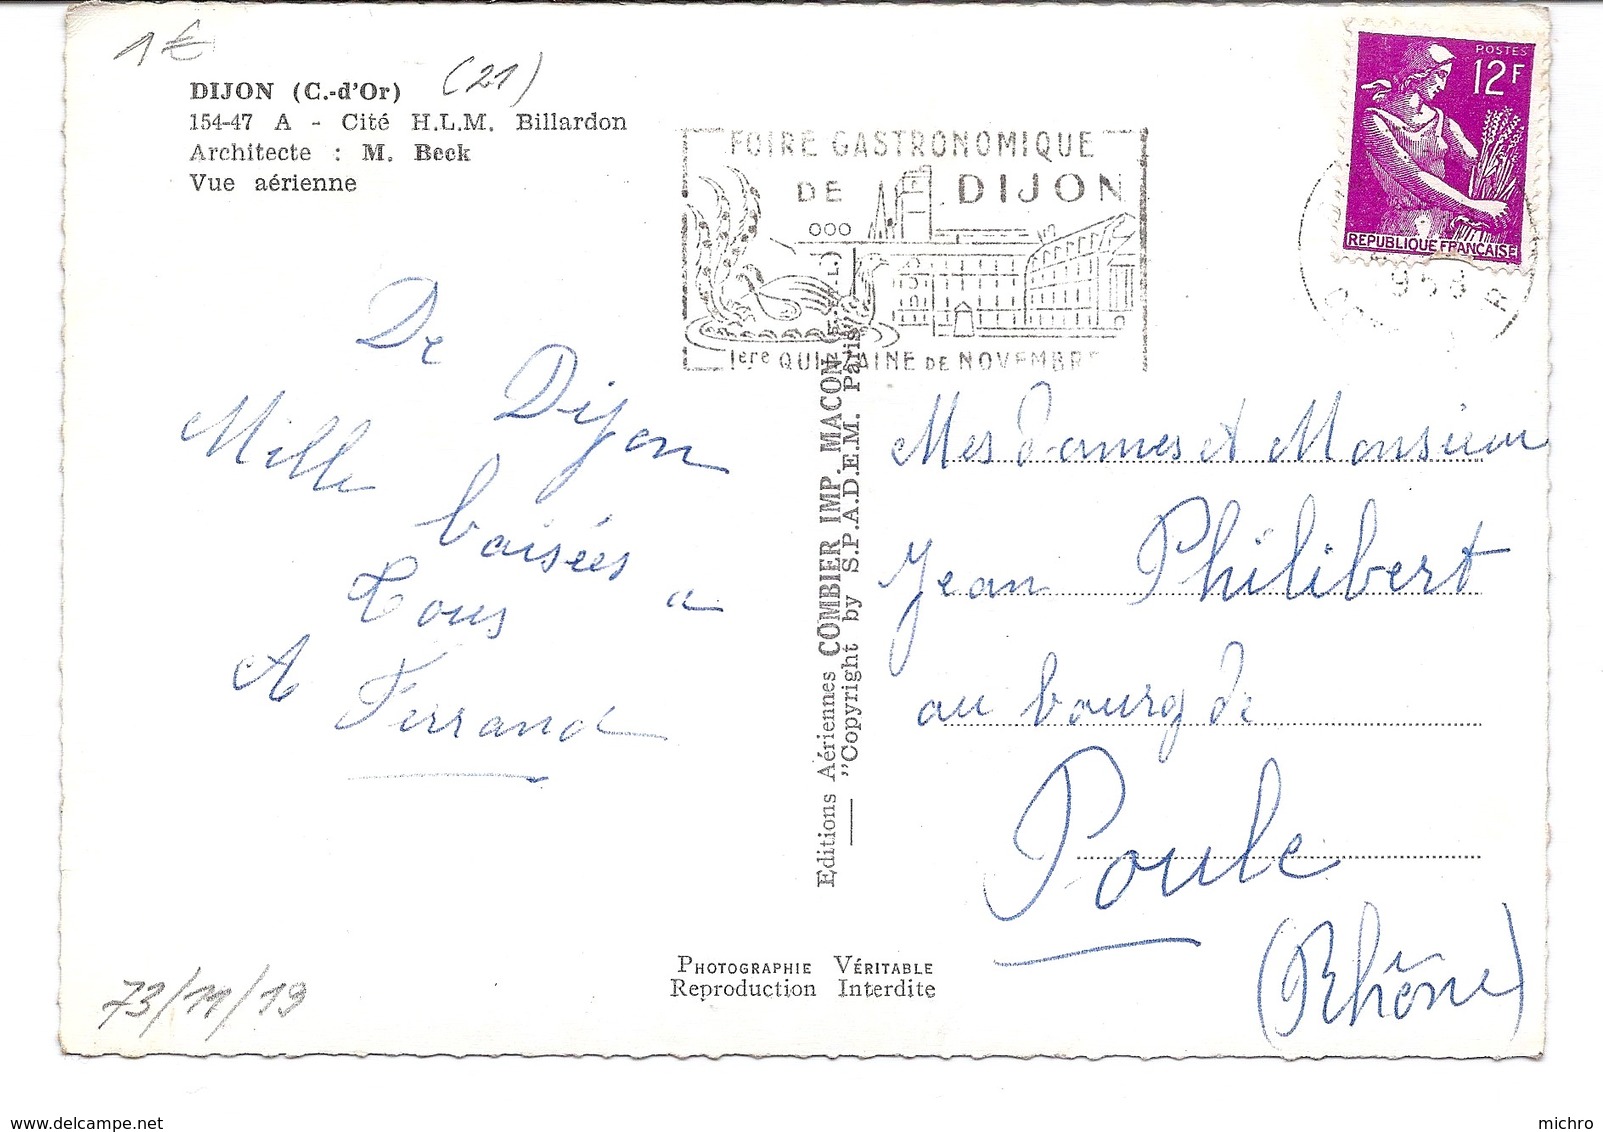 1 €
DIJON (C.-d'Or) (21)
154-47 A - Cité H.L.M. Billardon
Architecte : M. Beck
Vue aérienne
FOIRE GASTRONOMIQUE
DE DIJON
1ere QUINZAINE DE NOVEMBRE
POSTES
12F
REPUBLIQUE FRANÇAISE
De Dijon
Mille baisées
Tous a
A Ferrand
Editions Aériennes COMBIER IMP. MACON (S.-et-L.)
"Copyright by S.P.A.D.E.M. Paris"
Mesdames et Monsieur
Jean Philibert
au bourg de
Poule
(Rhône)
PHOTOGRAPHIE VÉRITABLE
Reproduction Interdite
73/11/19
delcampe.net
michro